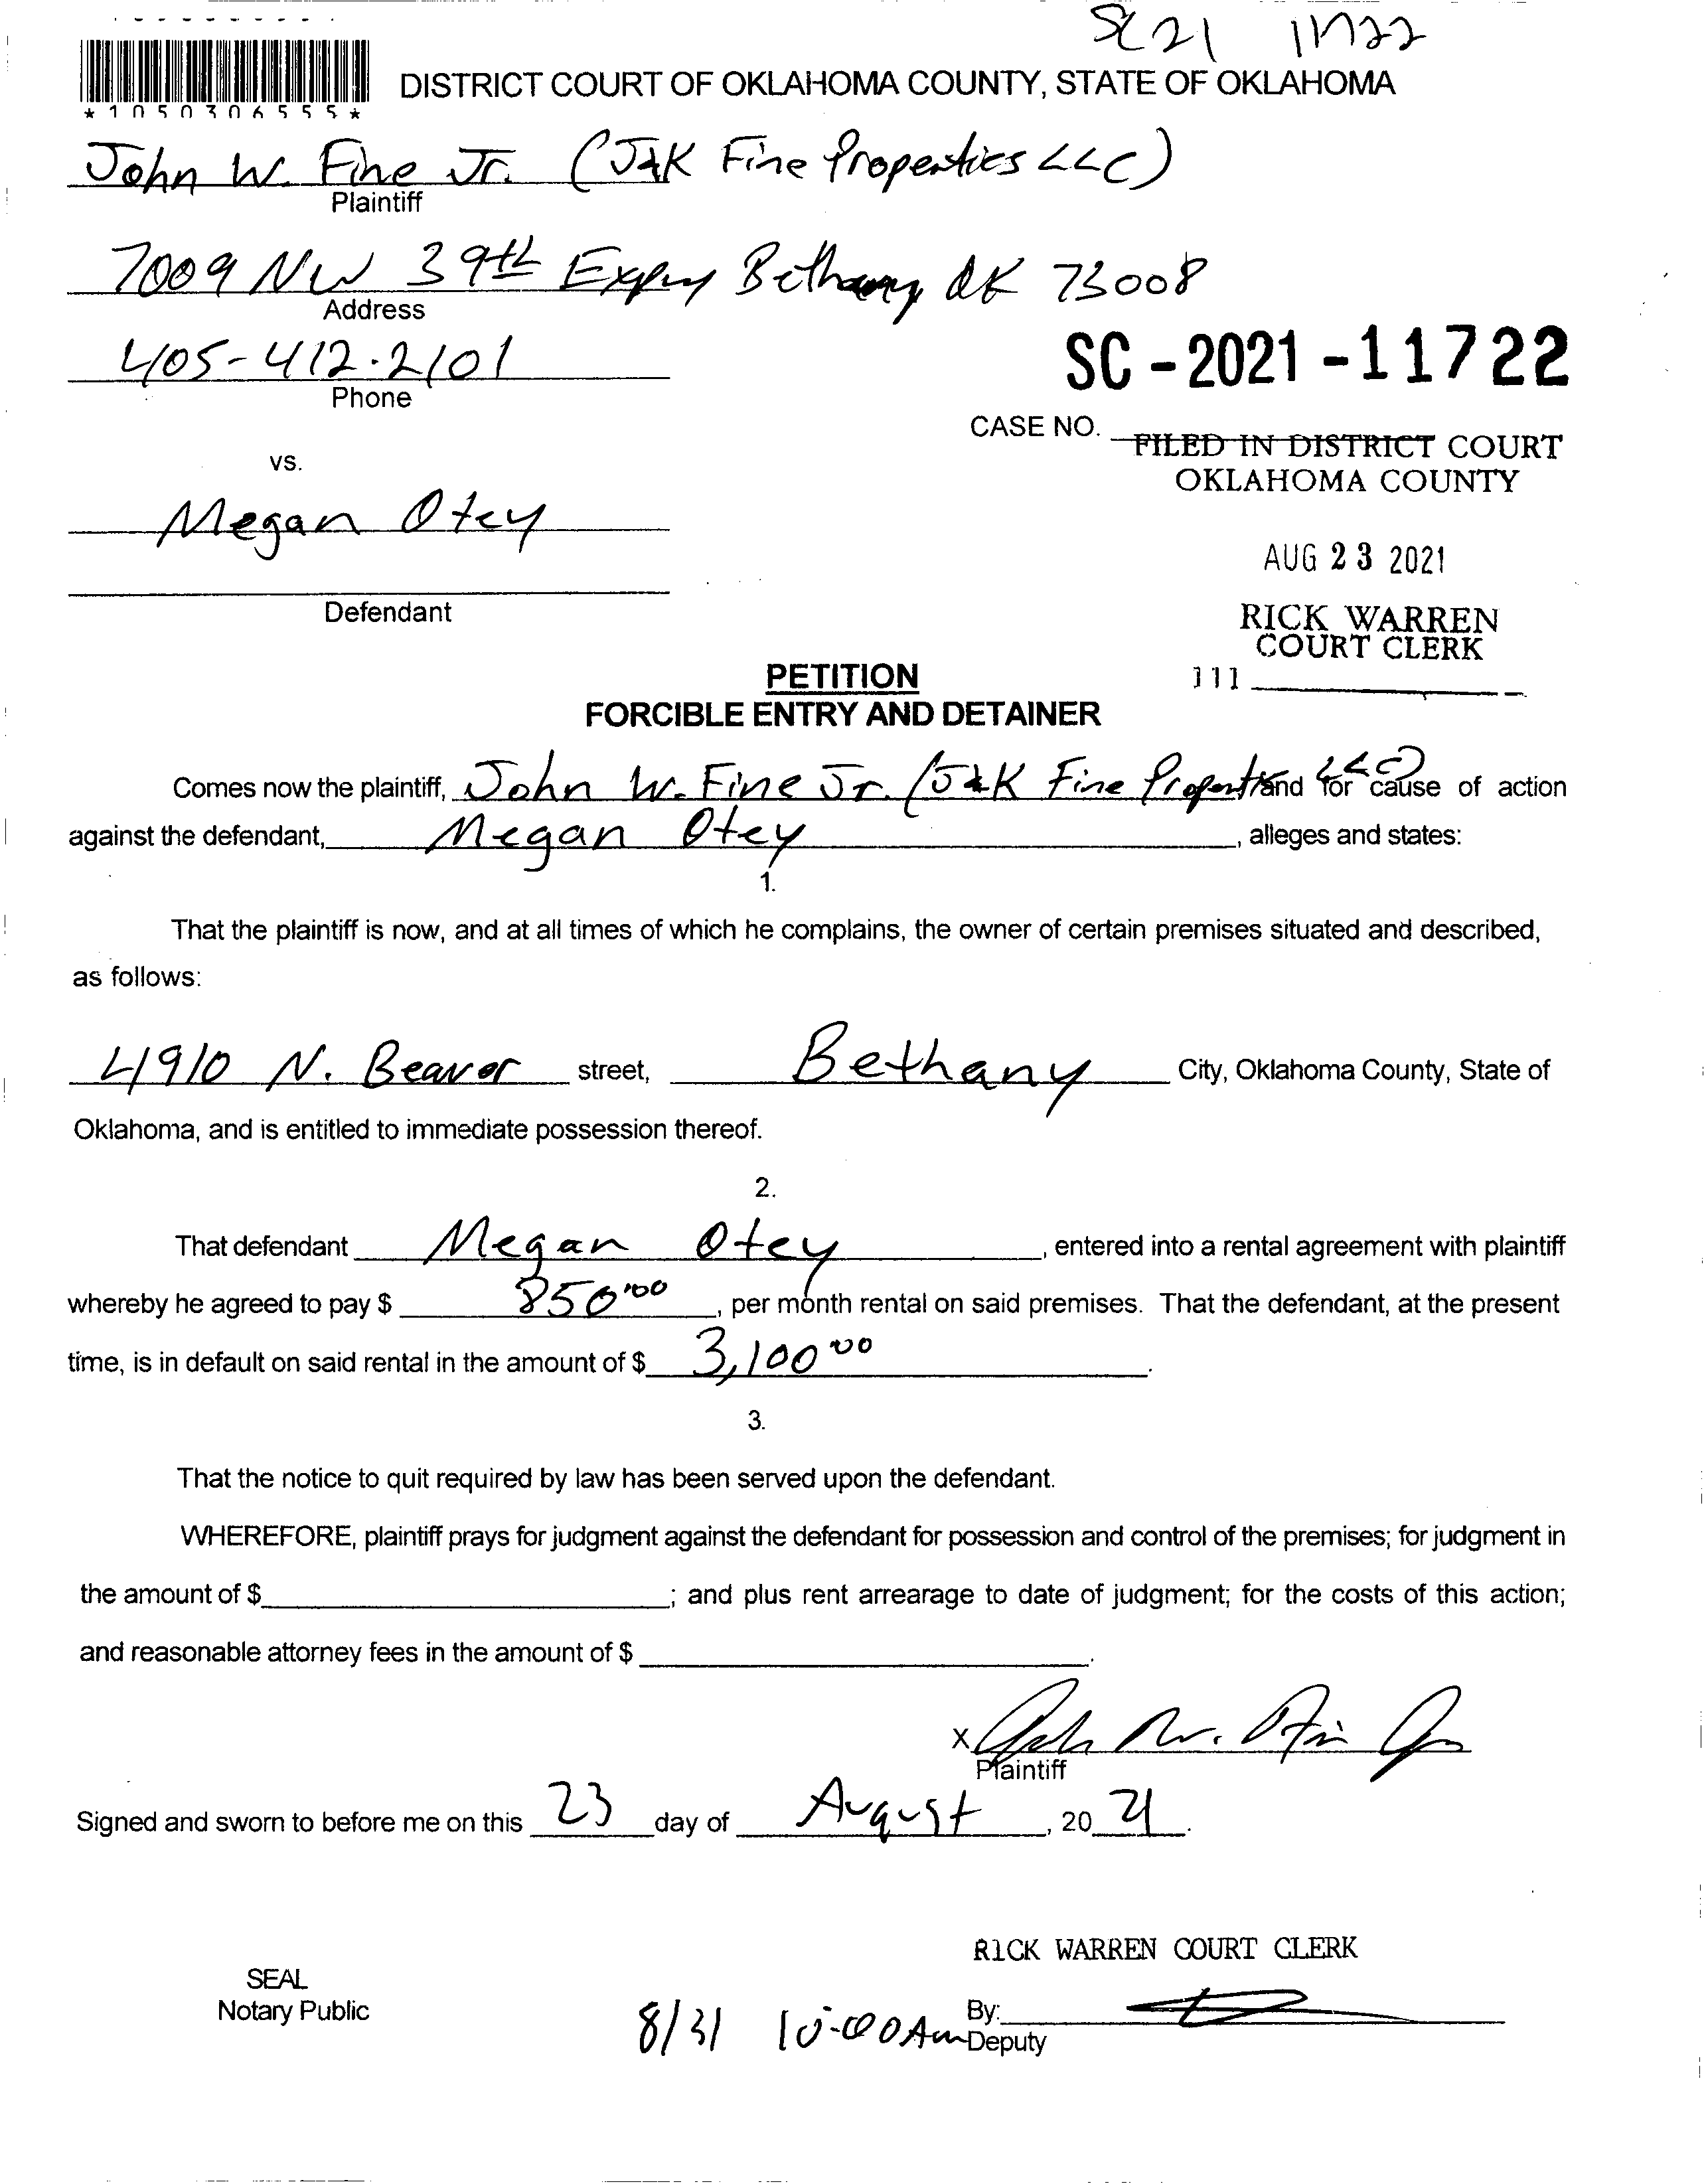 SC 21 11722
DISTRICT COURT OF OKLAHOMA COUNTY, STATE OF OKLAHOMA
*1050306555*
John W. Fine Jr. (J&K Fine Properties LLC)
Plaintiff
7009 NW 39th Expy Bethany OK 73008
Address
405-412-2101
Phone
SC-2021-11722
CASE NO.
FILED IN DISTRICT COURT
OKLAHOMA COUNTY
vs.
Megan Otey
AUG 23 2021
Defendant
RICK WARREN
COURT CLERK
111
PETITION
FORCIBLE ENTRY AND DETAINER
Comes now the plaintiff, John W. Fine Jr. (J&K Fine Properties LLC) and for cause of action
against the defendant, Megan Otey, alleges and states:
1.
That the plaintiff is now, and at all times of which he complains, the owner of certain premises situated and described,
as follows:
4910 N. Beaver street, Bethany City, Oklahoma County, State of
Oklahoma, and is entitled to immediate possession thereof.
2.
That defendant Megan Otey, entered into a rental agreement with plaintiff
whereby he agreed to pay $ 850.00, per month rental on said premises. That the defendant, at the present
time, is in default on said rental in the amount of $ 3,100 00.
3.
That the notice to quit required by law has been served upon the defendant.
WHEREFORE, plaintiff prays for judgment against the defendant for possession and control of the premises; for judgment in
the amount of $; and plus rent arrearage to date of judgment; for the costs of this action;
and reasonable attorney fees in the amount of $.
x John W. Fine Jr
Plaintiff
Signed and sworn to before me on this 23 day of August, 2021.
RICK WARREN COURT CLERK
SEAL
Notary Public
8/31 10:00 Am
By:
Deputy